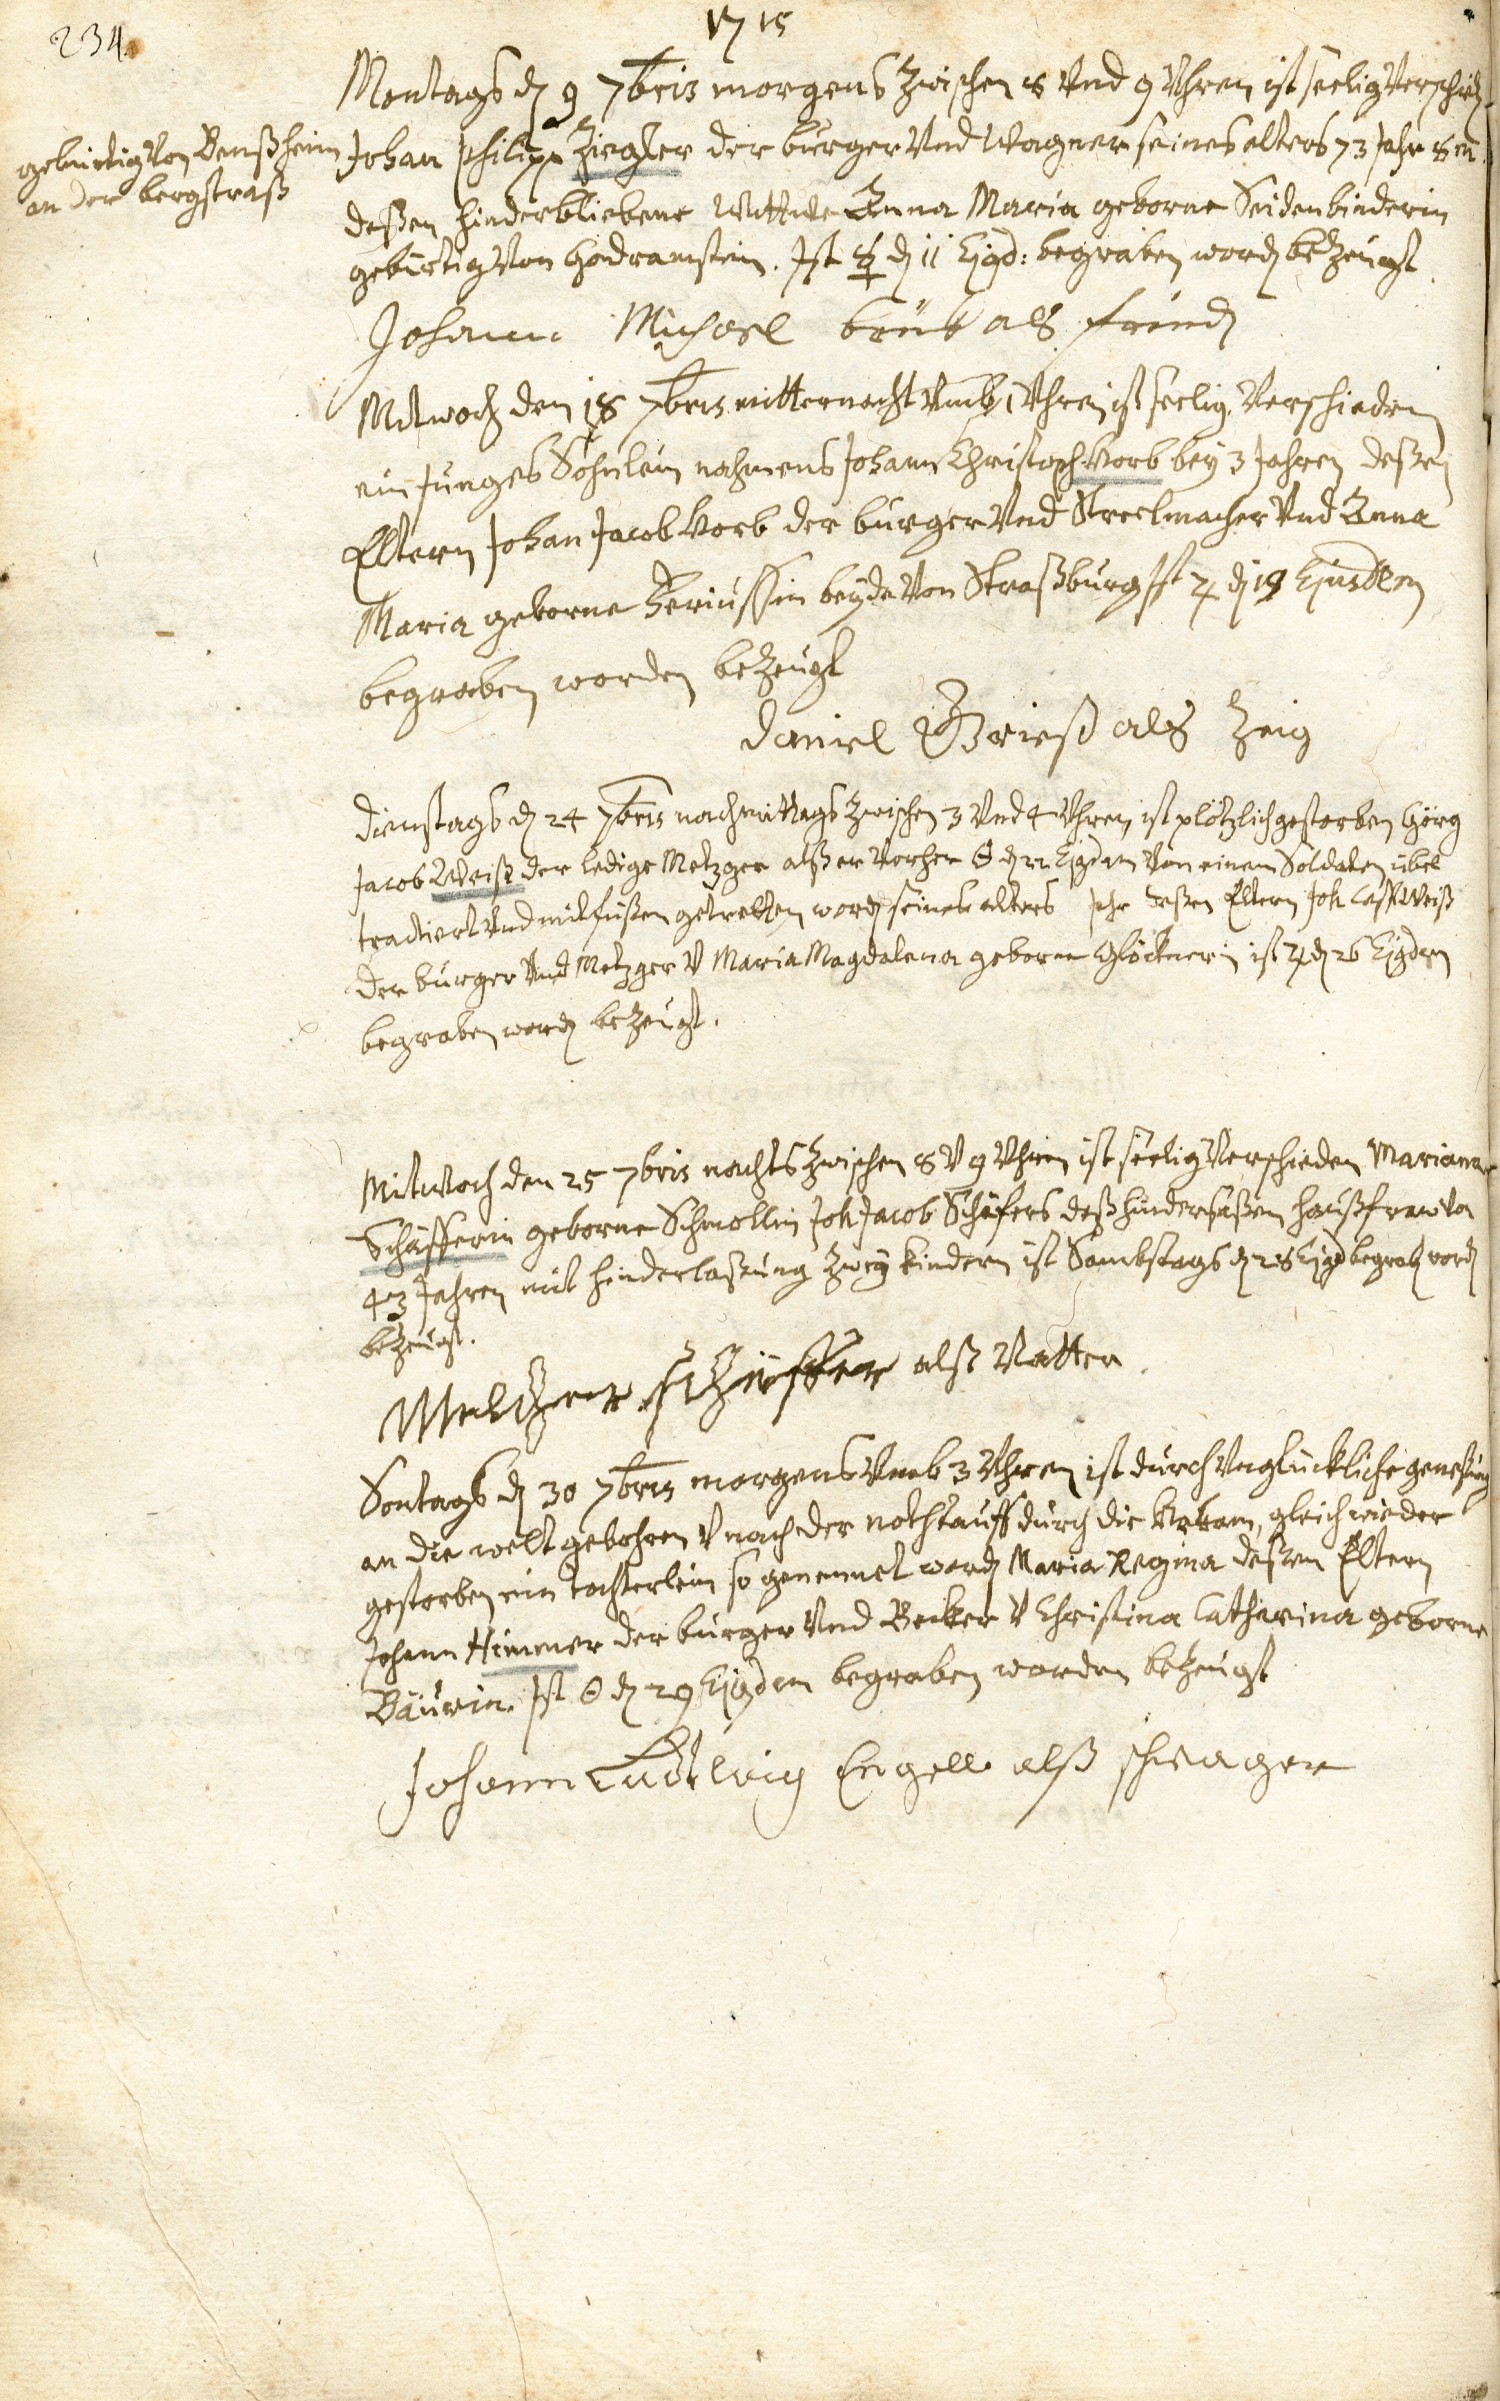 234.
1715
Montags d 9 7bris morgens zwischen 8 Vnd 9 Vhren ist seelig Verschied
Johan Philipp Ziegler der burger Vnd Wagner seines alters 73 Jahr 8 m.
gebürtig Von Benßheim
an der bergstraß
deßen hinderbliebene Wittwe Anna Maria geborne Seidenbinderin
gebürtig Von Godramstein. Ist ☿ d 11 Ejgd: begraben word bezeugt
Johann Michael als freund
Mitwoch den 18 7bris mitternacht Vmb 1 Vhren ist seelig Verschieden
ein Junges Söhnlein nahmens Johann Christoph Korb bey 3 Jahren deßen
Eltern Johan Jacob Korb der burger Vnd Streelmacher Vnd Anna
Maria geborne beyde Von Straßburg Ist ♃ d 19 Ejusdem
begraben worden bezeugt
Daniel als Zeig
Dienstags d 24 7bris nachmittags zwischen 3 Vnd 4 Vhren, ist plötzlich gestorben Görg
Jacob Weiß der ledige Metzger alß er Vorher ☉ d 22 Ejgdem Von einem Soldaten übel
tractiert Vnd mit füßen getretten word seines alters Jahr deßen Eltern Joh Weiß
der burger Vnd Metzger V Maria Magdalena geborne Glöcknerin ist ♃ d 26 Ejgdem
begraben word bezeugt.
Mitwoch den 25 7bris nachts zwischen 8 V 9 Vhren ist seelig Verschieden Mariana
Schäfferin geborne Schmollin Joh Jacob Schäfers deß hindersaßen haußfraw Von
43 Jahren mit hinderlaßung zwey kindern ist Sambstags d 28 Ejgd begrab word
bezeugt.
alß Vatter.
Sontags d 30 7bris morgens Vmb 3 Vhren ist durch Vnglückliche genesung
an die welt gebohren V nach der nothtauff durch die gleich wieder
gestorben ein tochterlein so genennet word Maria Regina deßen Eltern
Johann Himmer der burger Vnd Becker V Christina Catharina geborne
Bäurin. Ist ☉ d 29 Ejgdem begraben worden bezeugt
Johann Ludwig Engell alß schwager